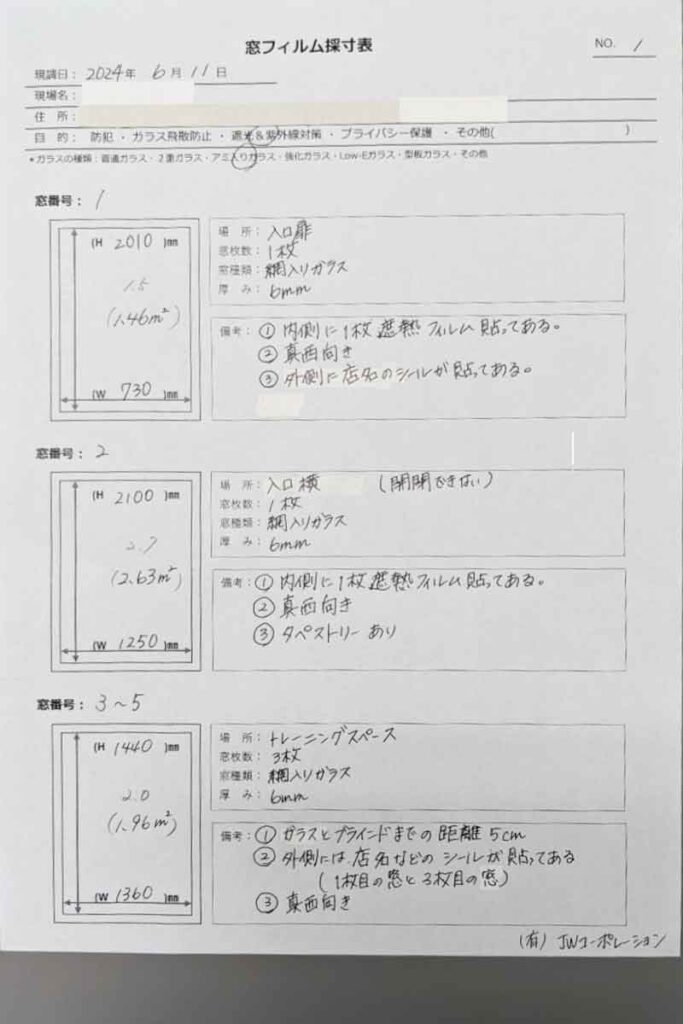 窓フィルム採寸表
NO. 1
現調日： 2024年 6月 11日
現場名：
住 所：
目 的： 防犯 ・ ガラス飛散防止 ・ 遮光＆紫外線対策 ・ プライバシー保護 ・ その他( )
*ガラスの種類：普通ガラス・２重ガラス・アミ入りガラス・強化ガラス・Low-Eガラス・型板ガラス・その他
窓番号： 1
(H 2010 )mm
1.5
(1.46m²)
(W 730 )mm
場 所： 入口扉
窓枚数： 1枚
窓種類： 網入りガラス
厚 み： 6mm
備考： ① 内側に1枚遮熱フィルム貼ってある。
② 真西向き
③ 外側に店名のシールが貼ってある。
窓番号： 2
(H 2100 )mm
2.7
(2.63m²)
(W 1250 )mm
場 所： 入口横 (開閉できない)
窓枚数： 1枚
窓種類： 網入りガラス
厚 み： 6mm
備考： ① 内側に1枚遮熱フィルム貼ってある。
② 真西向き
③ タペストリーあり
窓番号： 3～5
(H 1440 )mm
2.0
(1.96m²)
(W 1360 )mm
場 所： トレーニングスペース
窓枚数： 3枚
窓種類： 網入りガラス
厚 み： 6mm
備考： ① ガラスとブラインドまでの距離5cm
② 外側には店名などのシールが貼ってある
(1枚目の窓と3枚目の窓)
③ 真西向き
(有) JWコーポレーション